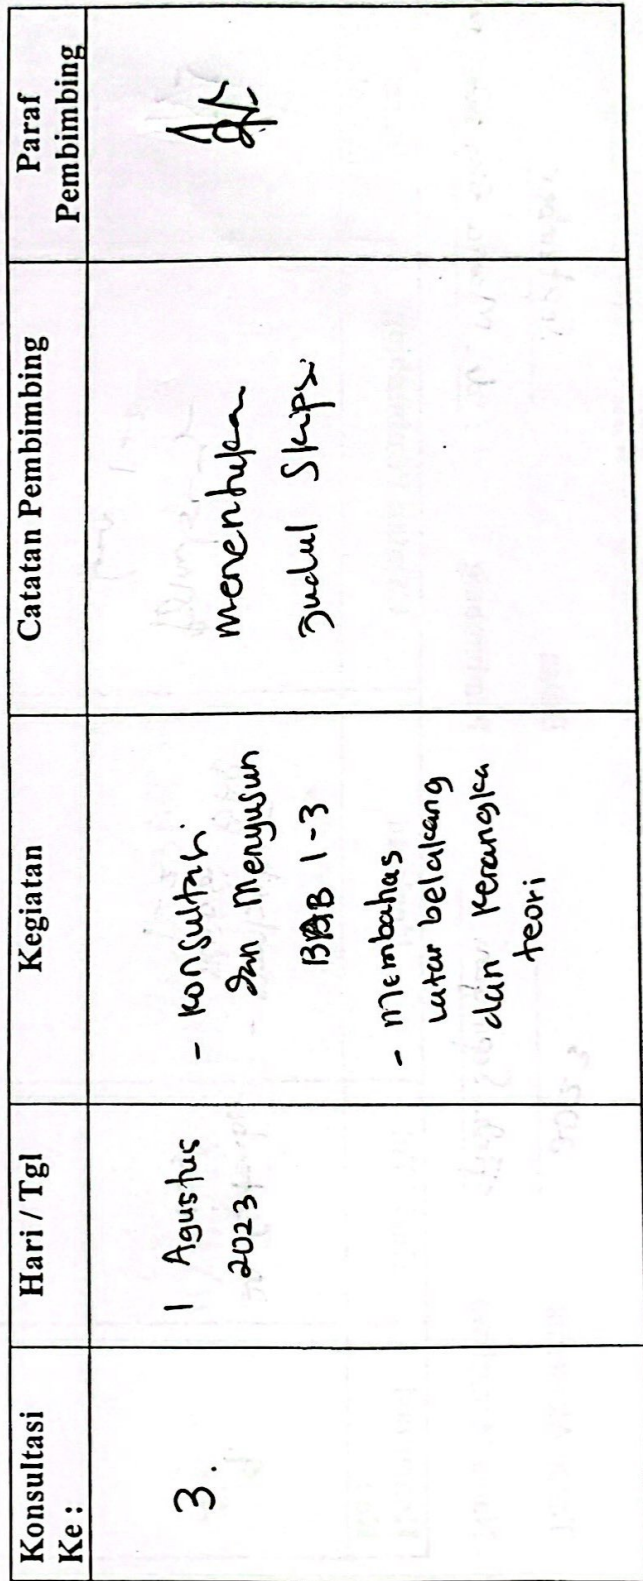 Konsultasi
Ke :
Hari / Tgl
Kegiatan
Catatan Pembimbing
Paraf
Pembimbing
3.
1 Agustus
2023
- Konsultasi
dan Menyusun
BAB 1-3
- Membahas
latar belakang
dan Kerangka
teori
menentukan
Judul Skripsi